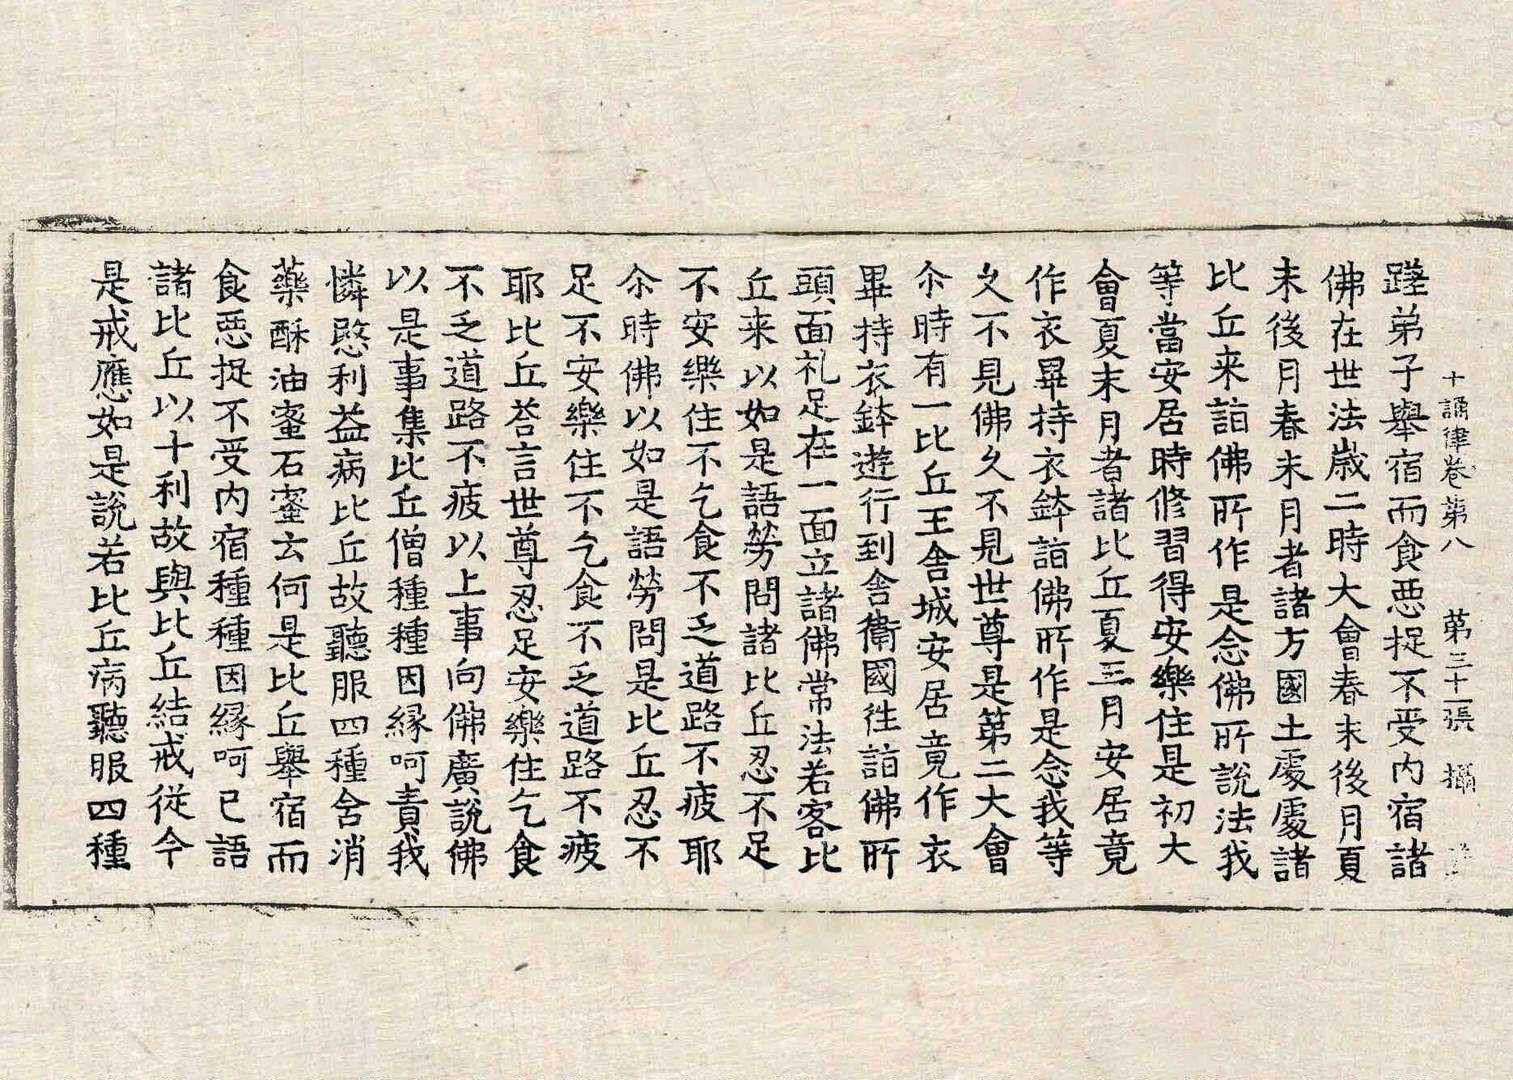 十誦律卷第八 第三十二張 攝
蹉弟子舉宿而食惡捉不受內宿諸
佛在世法歲二時大會春末後月夏
末後月春末月者諸方國土處處諸
比丘来詣佛所作是念佛所說法我
等當安居時修習得安樂住是初大
會夏末月者諸比丘夏三月安居竟
作衣畢持衣鉢詣佛所作是念我等
久不見佛久不見世尊是第二大會
尒時有一比丘王舍城安居竟作衣
畢持衣鉢遊行到舍衛國徃詣佛所
頭面礼足在一面立諸佛常法若客比
丘来以如是語勞問諸比丘忍不足
不安樂住不乞食不乏道路不疲耶
尒時佛以如是語勞問是比丘忍不
足不安樂住不乞食不乏道路不疲
耶比丘荅言世尊忍足安樂住乞食
不乏道路不疲以上事向佛廣說佛
以是事集比丘僧種種因緣呵責我
憐愍利益病比丘故聽服四種含消
藥酥油蜜石蜜云何是比丘舉宿而
食惡捉不受內宿種種因緣呵已語
諸比丘以十利故與比丘結戒從今
是戒應如是說若比丘病聽服四種